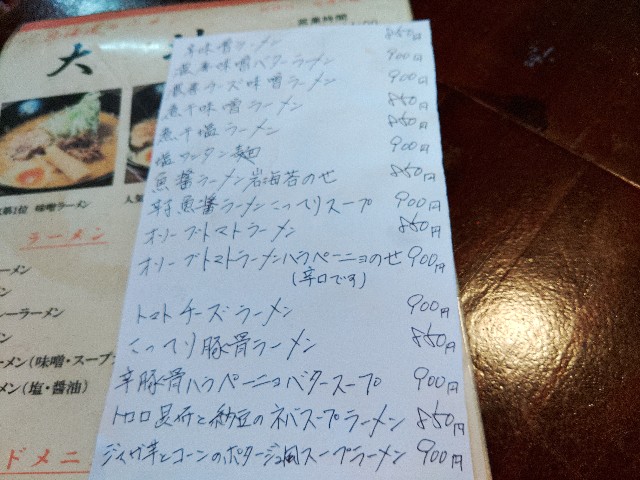 営業時間
大
辛味噌ラーメン 850円
濃厚味噌バターラーメン 900円
濃厚チーズ味噌ラーメン 900円
煮干味噌ラーメン 850円
煮干塩ラーメン 850円
塩ワンタン麺 900円
魚醤ラーメン岩海苔のせ 850円
魚醤ラーメンこってりスープ 900円
オリーブトマトラーメン 850円
オリーブトマトラーメンハラペーニョのせ 900円
(辛口です)
トマトチーズラーメン 900円
こってり豚骨ラーメン 850円
辛豚骨ハラペーニョバタースープ 900円
トロロ昆布と納豆のネバスープラーメン 850円
ジャガ芋とコーンのポタージュ風スープラーメン 900円
1位 味噌ラーメン
人気
ラーメン
ーメン
ーラーメン
ーメン(味噌・スープ
メン(塩・醤油)
ドメニ